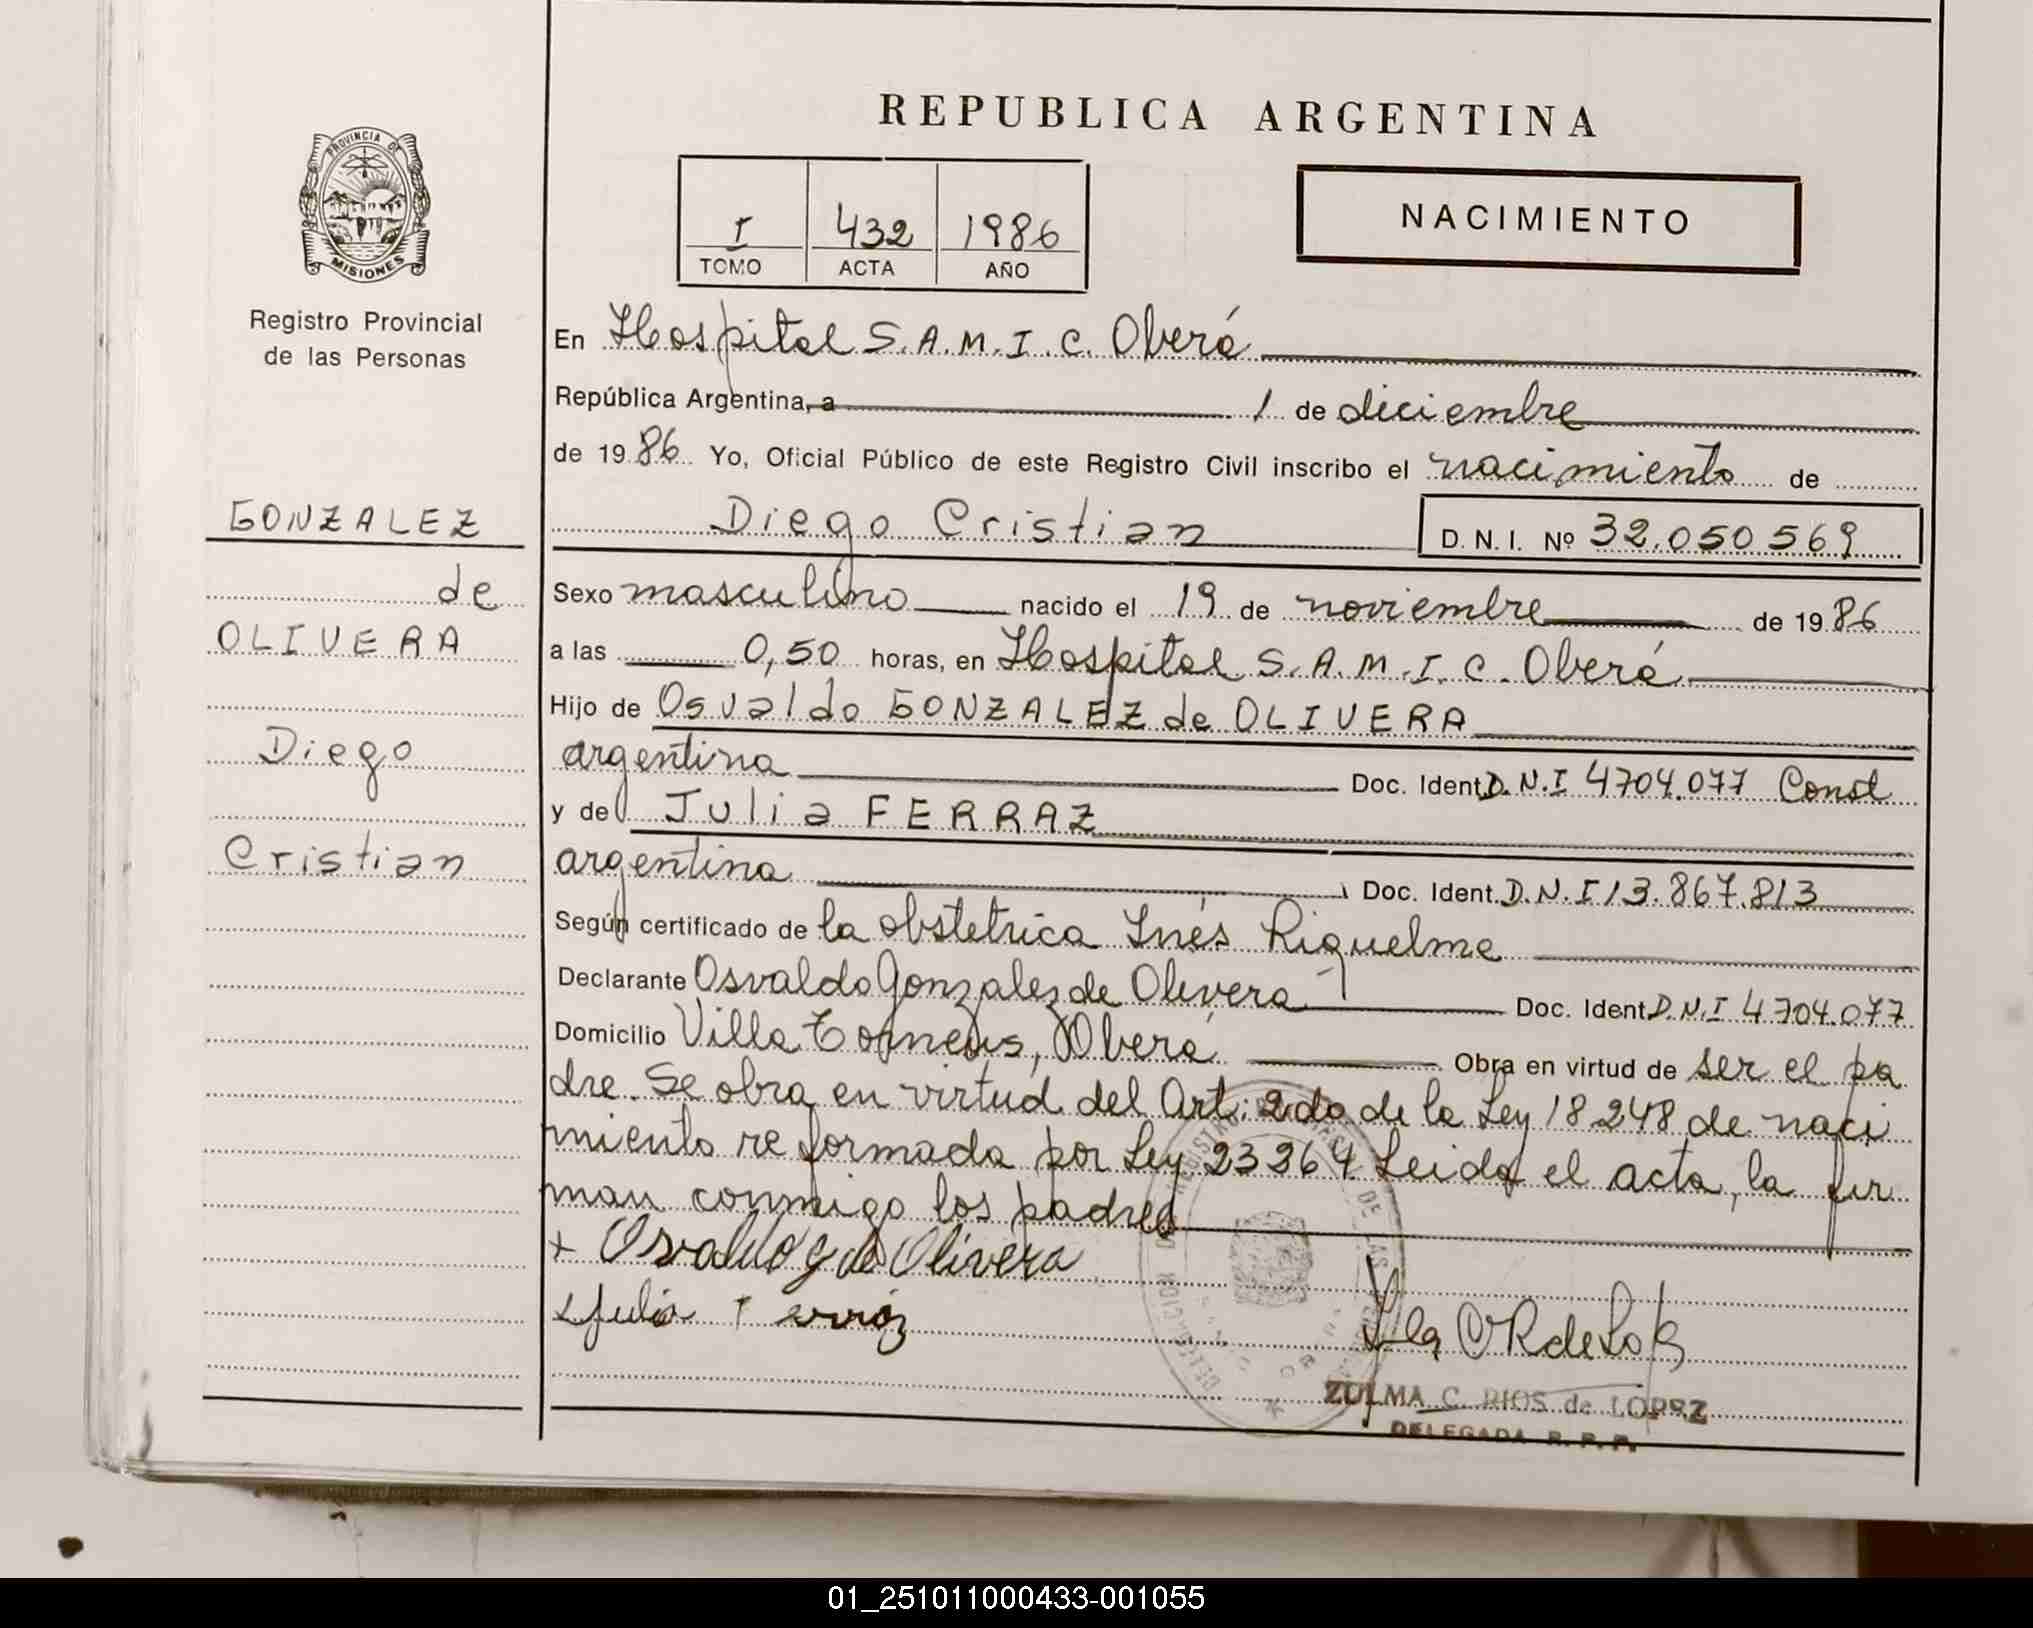 REPUBLICA ARGENTINA
PROVINCIA DE
MISIONES
Registro Provincial
de las Personas
I 432 1986
TOMO ACTA AÑO
NACIMIENTO
GONZALEZ
de
OLIVERA
Diego
Cristian
En Hospital S.A.M.I.C. Oberá
República Argentina, a 1 de diciembre
de 1986 Yo, Oficial Público de este Registro Civil inscribo el nacimiento de
Diego Cristian D.N.I. Nº 32.050569
Sexo masculino nacido el 19 de noviembre de 1986
a las 0,50 horas, en Hospital S.A.M.I.C. Oberá
Hijo de Osvaldo GONZALEZ de OLIVERA
argentina Doc. Ident. D.N.I 4704.077 Const
y de Julia FERRAZ
argentina Doc. Ident. D.N.I 13.867.813
Según certificado de la obstetrica Inés Riquelme
Declarante Osvaldo Gonzalez de Olivera Doc. Ident. D.N.I 4704.077
Domicilio Villa Oberá Obra en virtud de ser el pa
dre. Se obra en virtud del Art: 2do de la Ley 18248 de naci
miento reformada por Ley 23264 Leida el acta, la fir
man conmigo los padres
+ Osvaldo G de Olivera
x Julia Ferraz
ZULMA C. RIOS de LOPEZ
DELEGADA R. P. P.
01_251011000433-001055